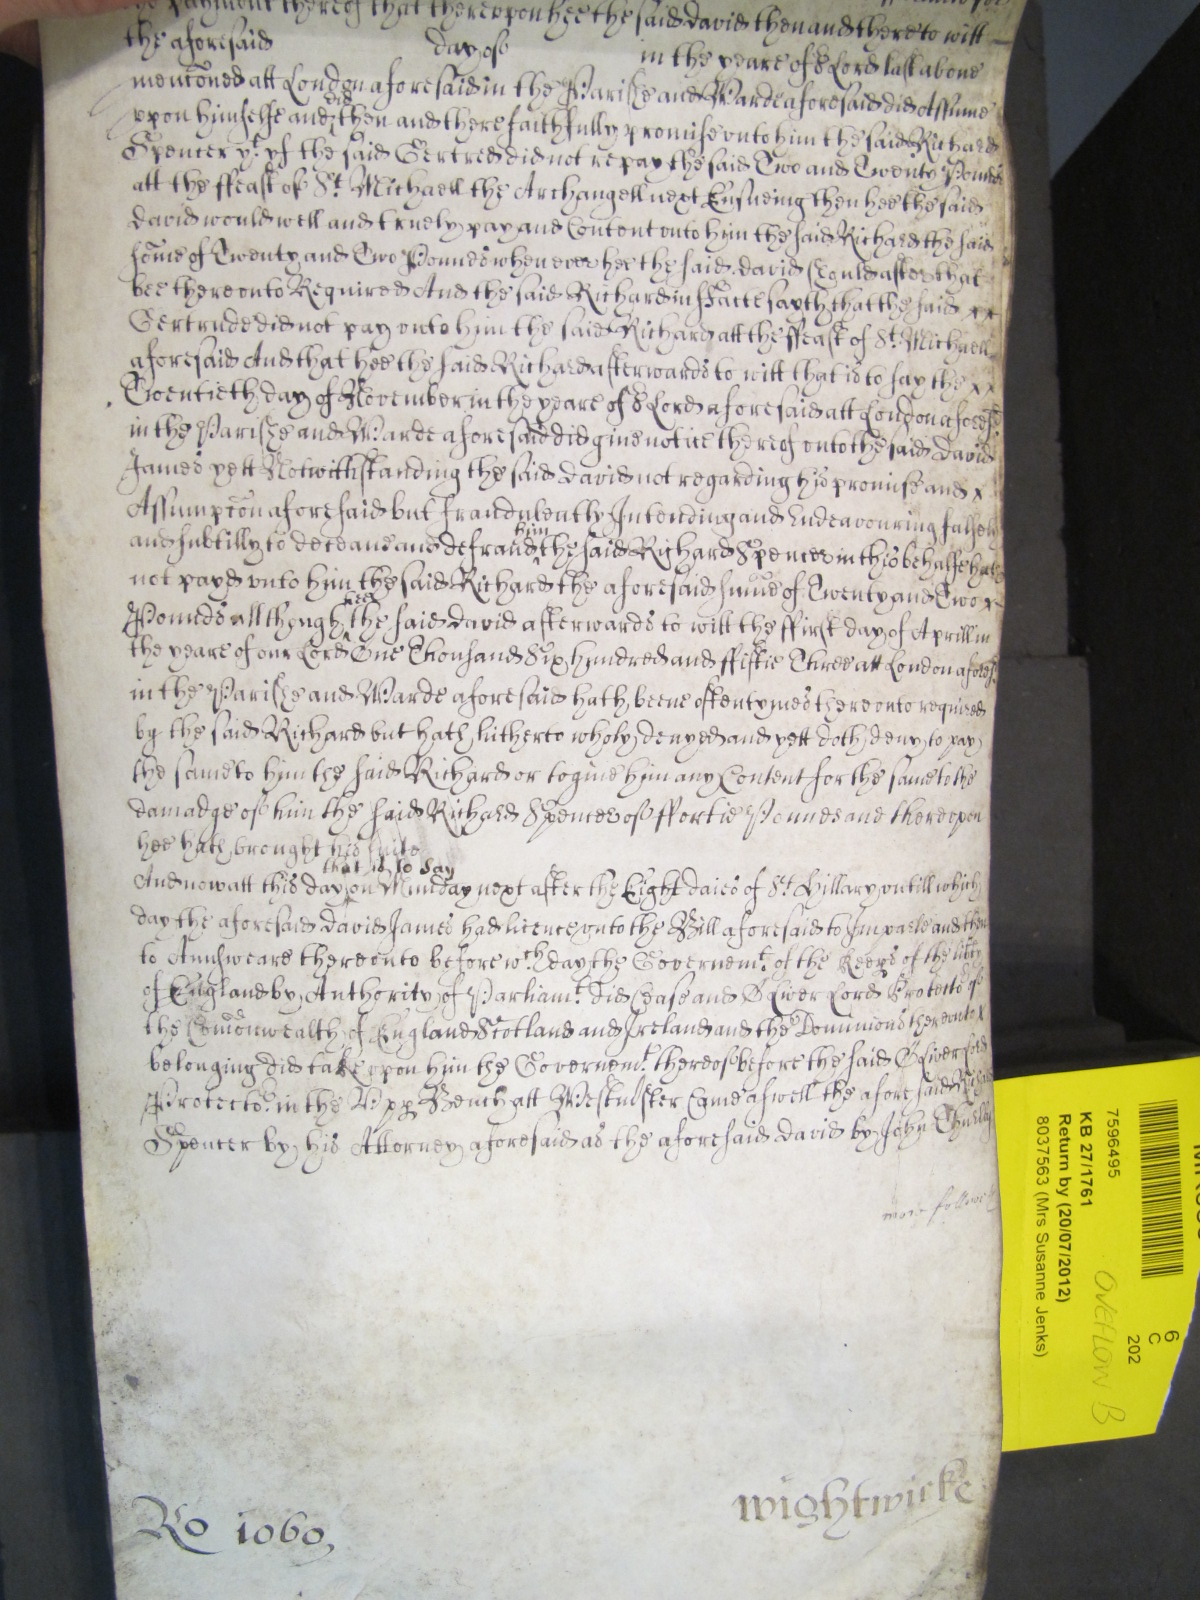 payment thereof that thereuppon hee the said david then and there to witt
the aforesaid day of in the yeare of oʳ Lord last above
menconed att London aforesaid in the Parishe and Warde aforesaid did Assume
upon himselfe and did then and there faithfully promise unto him the said Richard
Spencer yᵗ yf the said Gertred did not repay the said Two and Twenty Pounds
att the ffeast of Sᵗ Michaell the Archangell next Ensueing then hee the said
david would well and truely pay and Content unto him the said Richard the said
some of Twenty and Two Pounds when ever hee the said david should after that
bee thereunto Required And the said Richard in ffacte sayth that the said xx
Gertrude did not pay unto him the said Richard att the ffeast of Sᵗ Michaell
aforesaid And that hee the said Richard afterwards to witt that is to say the xx
Twentieth day of November in the yeare of oʳ Lord aforesaid att London aforesᵈ
in the Parishe and Warde aforesaid did give notice thereof unto the said David
James yett Notwithstanding the said david not regarding his promise and x
Assumpcon aforesaid but fraudulently Intending and Endeavouring falsely
and subtilly to deceave and defraud him the said Richard Spencer in this behalfe hath
not payd unto him the said Richard the aforesaid summe of Twenty and Two x
Pounds allthough hee the said david afterwards to witt the ffirst day of Aprill in
the yeare of our Lord One Thousand Six hundred and ffiftie Three att London aforesᵈ
in the Parishe and Warde aforesaid hath beene oftentymes thereunto required
by the said Richard but hath hitherto wholy denyed and yett doth deny to pay
the same to him the said Richard or to give him any Content for the same to the
damadge of him the said Richard Spencer of ffortie Pounds and thereupon
hee hath brought his suite
And now att this day that is to say on Munday next after the Eight daies of Sᵗ Hillary untill which
day the aforesaid david James had licence unto the Bill aforesaid to Imparle and then
to Answeare thereunto before wᶜʰ day the Governemᵗ of the Keepʳs of the libty
of England by Authority of Parliamᵗ did Cease and Oliver Lord Protector of
the Comonwealth of England Scotland and Ireland and the Dominions thereunto x
belonging did take upon him the Governemᵗ thereof before the said Oliver Lord
Protectoʳ in the Upp Bench att Westminster Came aswell the aforesaid Richard
Spencer by his Attorney aforesaid as the aforesaid david by John
more followeth
Ro 1060
wightwicke
7596495
KB 27/1761
Return by (20/07/2012)
8037563 (Mrs Susanne Jenks)
OVERFLOW B
6
C
202